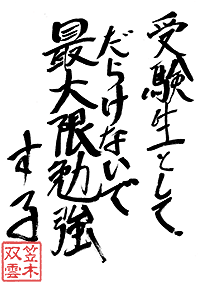 受験生として、
だらけないで
最大限勉強
する
笠木
双雲